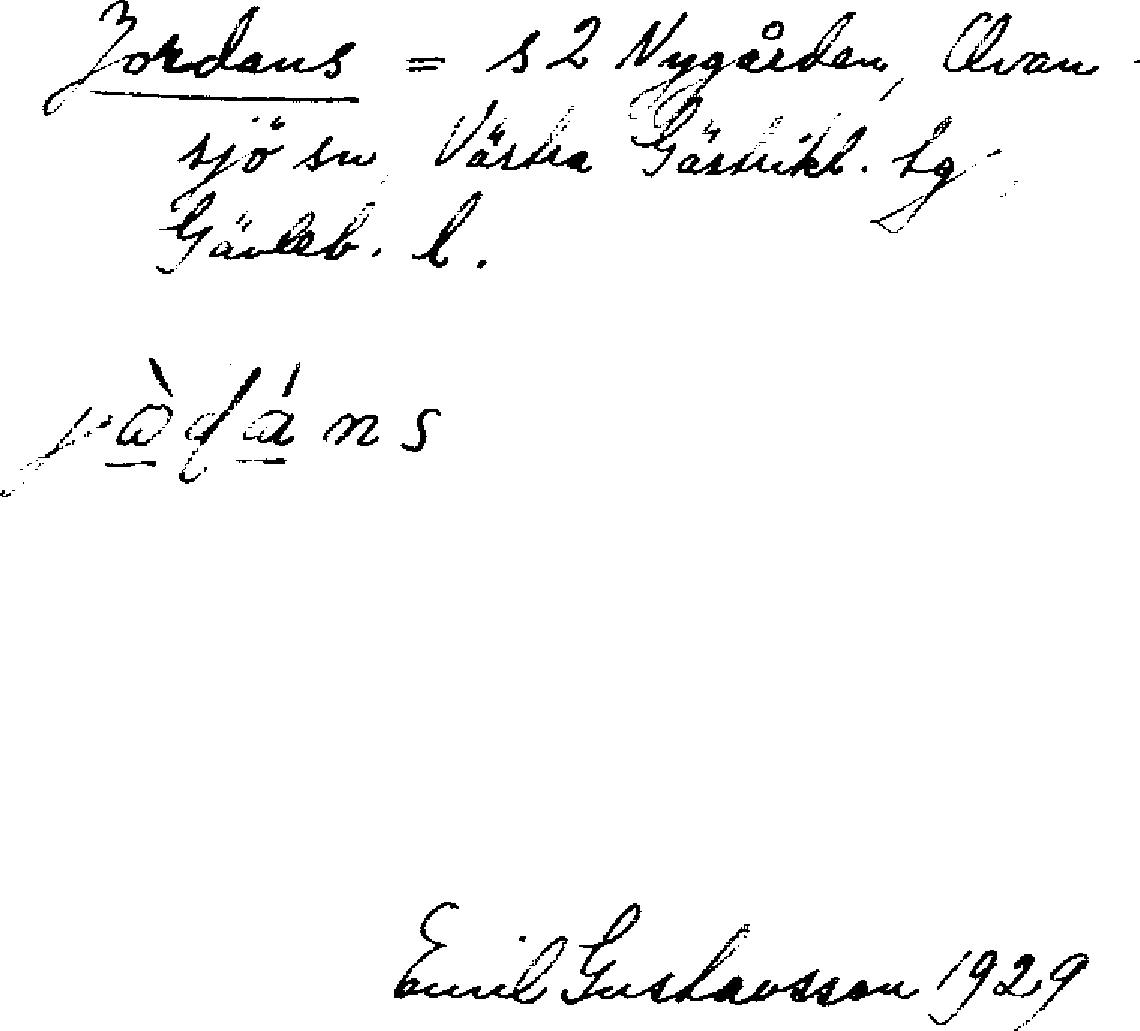 Jordans = s 2 Nygården, Ovan-
sjö sn, Västra Gästrikl. tg,
Gävleb. l.
Emil Gustavsson 1929